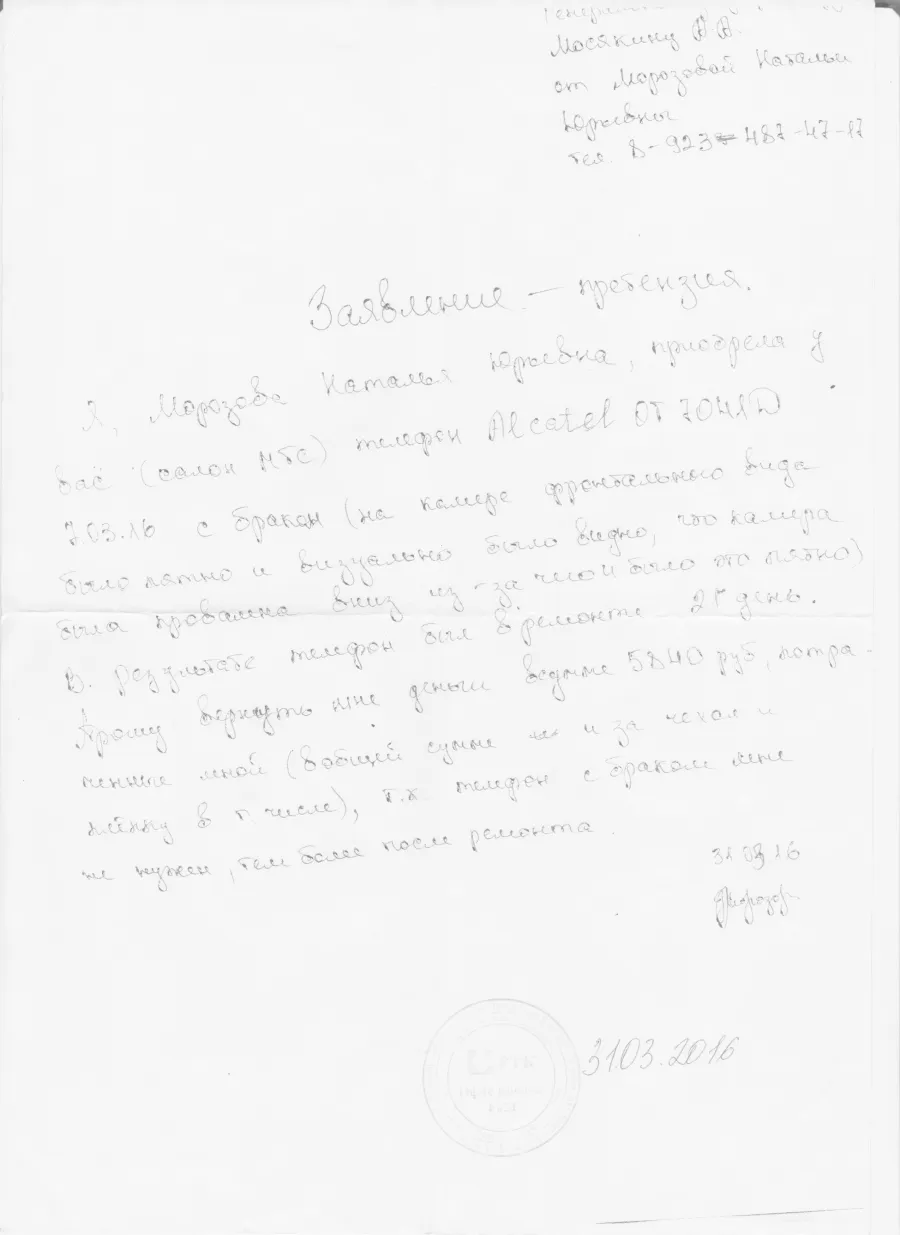 Мосякину А А.
от Морозовой Натальи
Юрьевны
тел. 8-923-487-47-17
Заявление - претензия.
Я, Морозова Наталья Юрьевна, приобрела у
вас (салон МТС) телефон Alcatel OT 7041D
7.03.16 с браком (на камере фронтального вида
было пятно и визуально было видно, что камера
была провалена вниз из-за чего и было это пятно)
В результате телефон был в ремонте 21 день.
Прошу вернуть мне деньги в сумме 5840 руб, потра-
ченные мной (в общей сумме и за чехол и
плёнку в т. числе), т.к телефон с браком мне
не нужен, тем более после ремонта.
31 03 16
31.03.2016
РТК